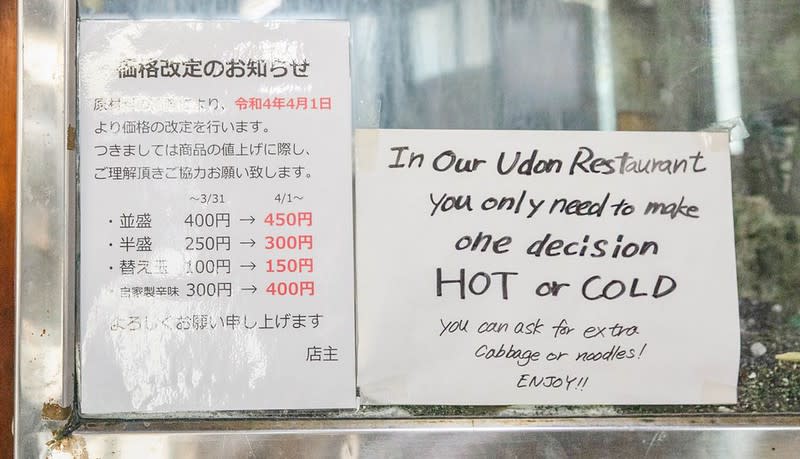 価格改定のお知らせ
により、令和4年4月1日
より価格の改定を行います。
つきましては商品の値上げに際し、
ご理解頂きご協力お願い致します。
～3/31 4/1～
・並盛 400円 → 450円
・半盛 250円 → 300円
・替え玉 100円 → 150円
・自家製辛味 300円 → 400円
よろしくお願い申し上げます
店主
In Our Udon Restaurant
you only need to make
one decision
HOT or COLD
you can ask for extra
Cabbage or noodles!
ENJOY!!